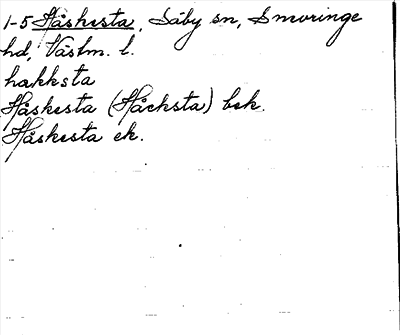 1-5 Håskesta, Säby sn, Snevringe
hd, Västm. l.
hakksta
Håskesta (Håcksta) bek.
Håskesta ek.